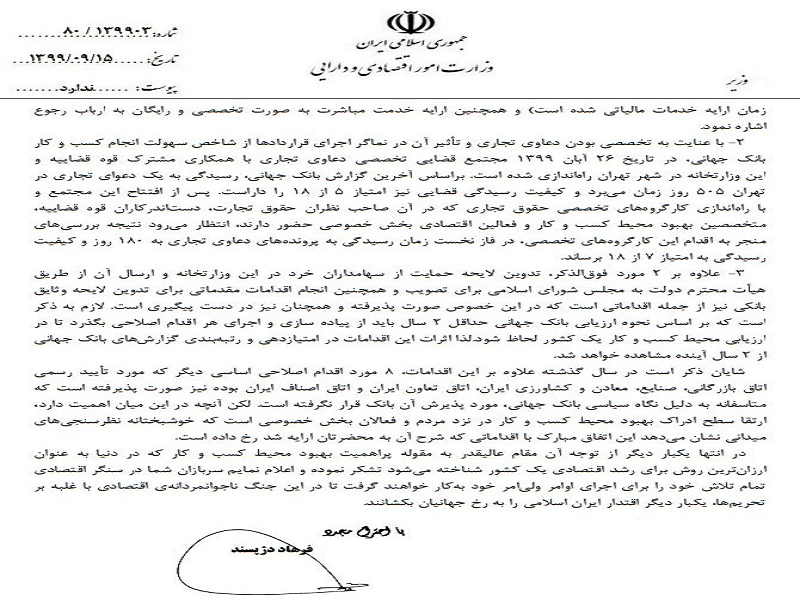 جمهوری اسلامی ایران
وزارت امور اقتصادی و دارایی
وزیر
شماره: ۸۰/۱۳۹۹۰۳
تاریخ: ۱۳۹۹/۰۹/۱۵
پیوست: ندارد
زمان ارایه خدمات مالیاتی شده است) و همچنین ارایه خدمت مباشرت به صورت تخصصی و رایگان به ارباب رجوع
اشاره نمود.
۲- با عنایت به تخصصی بودن دعاوی تجاری و تأثیر آن در نماگر اجرای قراردادها از شاخص سهولت انجام کسب و کار
بانک جهانی، در تاریخ ۲۶ آبان ۱۳۹۹ مجتمع قضایی تخصصی دعاوی تجاری با همکاری مشترک قوه قضاییه و
این وزارتخانه در شهر تهران راه‌اندازی شده است. براساس آخرین گزارش بانک جهانی، رسیدگی به یک دعوای تجاری در
تهران ۵۰۵ روز زمان می‌برد و کیفیت رسیدگی قضایی نیز امتیاز ۵ از ۱۸ را داراست. پس از افتتاح این مجتمع و
با راه‌اندازی کارگروه‌های تخصصی حقوق تجاری که در آن صاحب نظران حقوق تجارت، دست‌اندرکاران قوه قضاییه،
متخصصین بهبود محیط کسب و کار و فعالین اقتصادی بخش خصوصی حضور دارند، انتظار می‌رود نتیجه بررسی‌های
منجر به اقدام این کارگروه‌های تخصصی، در فاز نخست زمان رسیدگی به پرونده‌های دعاوی تجاری به ۱۸۰ روز و کیفیت
رسیدگی به امتیاز ۷ از ۱۸ برساند.
۳- علاوه بر ۲ مورد فوق‌الذکر، تدوین لایحه حمایت از سهامداران خرد در این وزارتخانه و ارسال آن از طریق
هیأت محترم دولت به مجلس شورای اسلامی برای تصویب و همچنین انجام اقدامات مقدماتی برای تدوین لایحه وثایق
بانکی نیز از جمله اقداماتی است که در این خصوص صورت پذیرفته و همچنان نیز در دست پیگیری است. لازم به ذکر
است که بر اساس نحوه ارزیابی بانک جهانی حداقل ۲ سال باید از پیاده سازی و اجرای هر اقدام اصلاحی بگذرد تا در
ارزیابی محیط کسب و کار یک کشور لحاظ شود.لذا اثرات این اقدامات در امتیازدهی و رتبه‌بندی گزارش‌های بانک جهانی
از ۲ سال آینده مشاهده خواهد شد.
شایان ذکر است در سال گذشته علاوه بر این اقدامات، ۸ مورد اقدام اصلاحی اساسی دیگر که مورد تأیید رسمی
اتاق بازرگانی، صنایع، معادن و کشاورزی ایران، اتاق تعاون ایران و اتاق اصناف ایران بوده نیز صورت پذیرفته است که
متاسفانه به دلیل نگاه سیاسی بانک جهانی، مورد پذیرش آن بانک قرار نگرفته است. لکن آنچه در این میان اهمیت دارد،
ارتقا سطح ادراک بهبود محیط کسب و کار در نزد مردم و فعالان بخش خصوصی است که خوشبختانه نظرسنجی‌های
میدانی نشان می‌دهد این اتفاق مبارک با اقداماتی که شرح آن به محضرتان ارایه شد رخ داده است.
در انتها یکبار دیگر از توجه آن مقام عالیقدر به مقوله پراهمیت بهبود محیط کسب و کار که در دنیا به عنوان
ارزان‌ترین روش برای رشد اقتصادی یک کشور شناخته می‌شود تشکر نموده و اعلام نمایم سربازان شما در سنگر اقتصادی
تمام تلاش خود را برای اجرای اوامر ولی‌امر خود به‌کار خواهند گرفت تا در این جنگ ناجوانمردانه‌ی اقتصادی با غلبه بر
تحریم‌ها، یکبار دیگر اقتدار ایران اسلامی را به رخ جهانیان بکشانند.
با احترام مجدد
فرهاد دژپسند